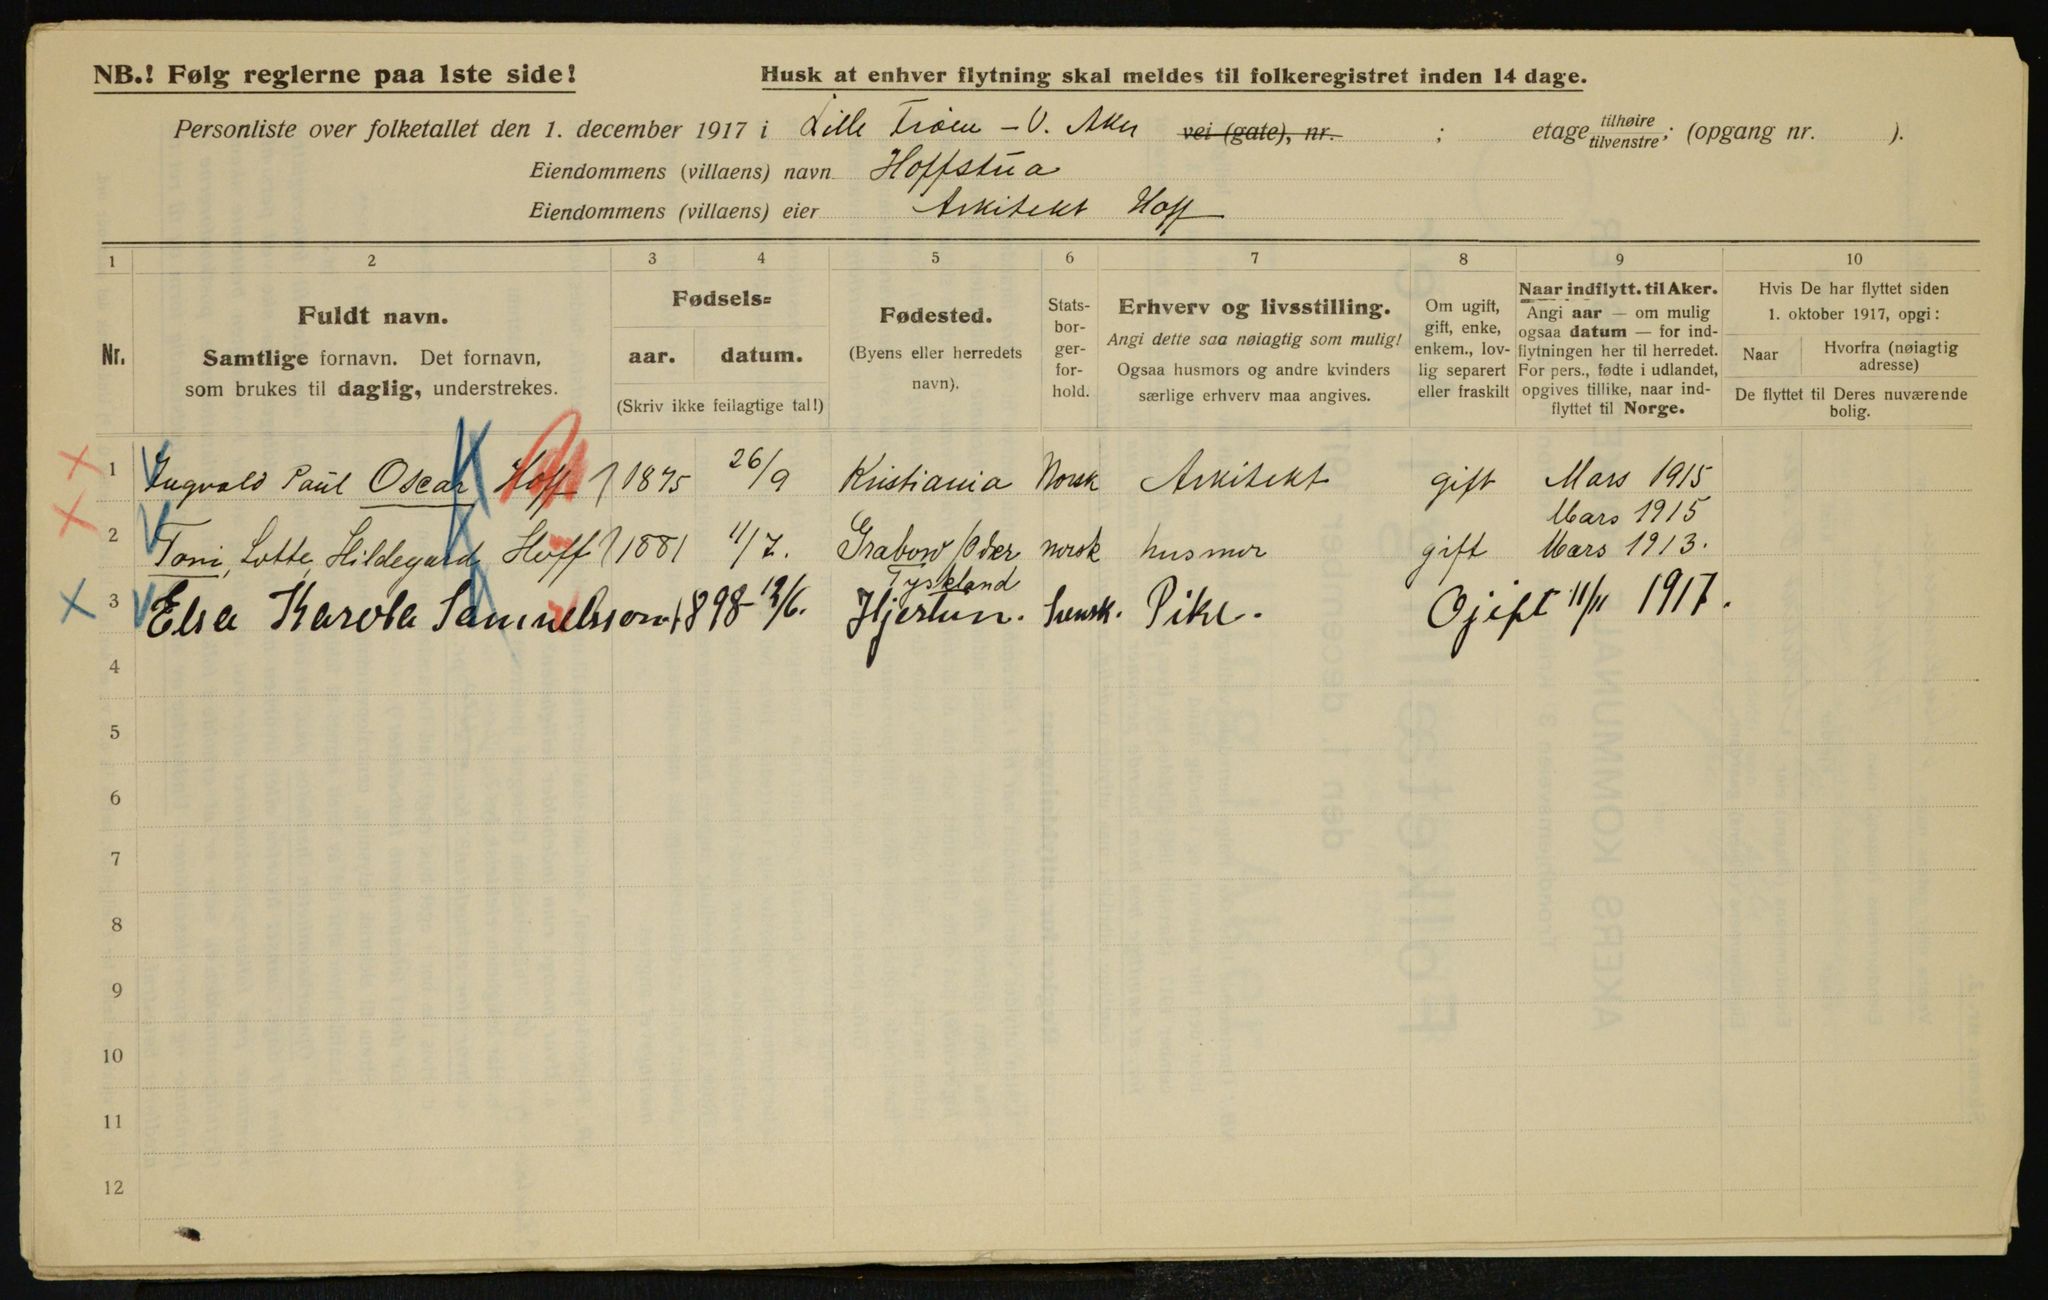 NB.! Følg reglerne paa 1ste side!
Husk at enhver flytning skal meldes til folkeregistret inden 14 dage.
Personliste over folketallet den 1. december 1917 i Lille Frøen – V. Aker vei (gate), nr. ; etage tilhøire tilvenstre; (opgang nr. ).
Eiendommens (villaens) navn Hoffstua
Eiendommens (villaens) eier Arkitekt Hoff
1 2 3 4 5 6 7 8 9 10
Nr.
Fuldt navn.
Samtlige fornavn. Det fornavn,
som brukes til daglig, understrekes.
Fødsels=
aar. datum.
(Skriv ikke feilagtige tal!)
Fødested.
(Byens eller herredets
navn).
Stats-
bor-
ger-
for-
hold.
Erhverv og livsstilling.
Angi dette saa nøiagtig som mulig!
Ogsaa husmors og andre kvinders
særlige erhverv maa angives.
Om ugift,
gift, enke,
enkem., lov-
lig separert
eller fraskilt
Naar indflytt. til Aker.
Angi aar — om mulig
ogsaa datum — for ind-
flytningen her til herredet.
For pers., fødte i udlandet,
opgives tillike, naar ind-
flyttet til Norge.
Hvis De har flyttet siden
1. oktober 1917, opgi:
Naar
Hvorfra (nøiagtig
adresse)
De flyttet til Deres nuværende
bolig.
1 Ingvald Paul Oscar Hoff 1875 26/9 Kristiania Norsk Arkitekt gift Mars 1915
Mars 1915
2 Toni, Lotte, Hildegard Hoff 1881 11/7. Grabow /Oder norsk husmor gift Mars 1913.
Tyskland
3 Elsa Karola Samuelsson 1898 12/6. Hjertun. Svensk. Pike. Ogift 11/11 1917.
4
5
6
7
8
9
10
11
12